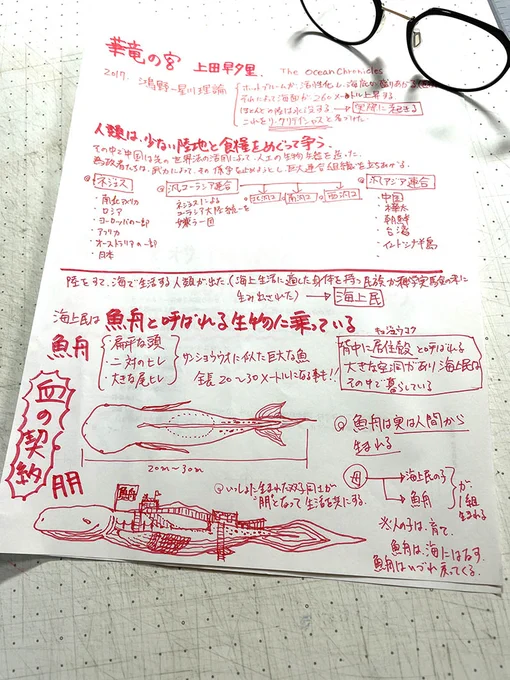 華竜の宮 上田早夕里. The Ocean Chronicles
2017. 鴻野-星川理論
ホットプルームが活性化し、海底が盛りあがる
それによって海面が260メートル上昇する
ほとんどの陸は水没する → 実際に起きる
これをリ・クリティシャスと名づけた.
人類は、少ない陸地と食糧をめぐって争う.
◎ネジェス
・南北アメリカ
・ロシア
・ヨーロッパの一部
・アフリカ
・オーストラリアの一部
・日本
◎汎ユーラシア連合
ネジェスによる
ユーラシア大陸統一を
嫌う一団
◎汎アジア連合
・中国
・樺太
・朝鮮
・台湾
・インドシナ半島
陸をすて、海で生活する人類が出た(海上生活に適した身体を持つ民族が
生み出された) → 海上民
海上民は魚舟と呼ばれる生物に乗っている
魚舟
・扁平な頭
・二対のヒレ
・大きな尾ヒレ
サンショウウオに似た巨大な魚
全長20〜30メートルになる
背中に居住殻と呼ばれる
大きな空洞があり海上民は
その中で暮らしている
血の契約
朋
20m〜30m
◎魚舟は実は人間から
生まれる
母 → 海上民の子
→ 魚舟
が1組
生まれる
◎いっしょに生まれた双子同士が
"朋"となって生活を共にする.
魚舟
※人の子は育て.
魚舟は、海にはなす.
魚舟はいづれ戻ってくる.